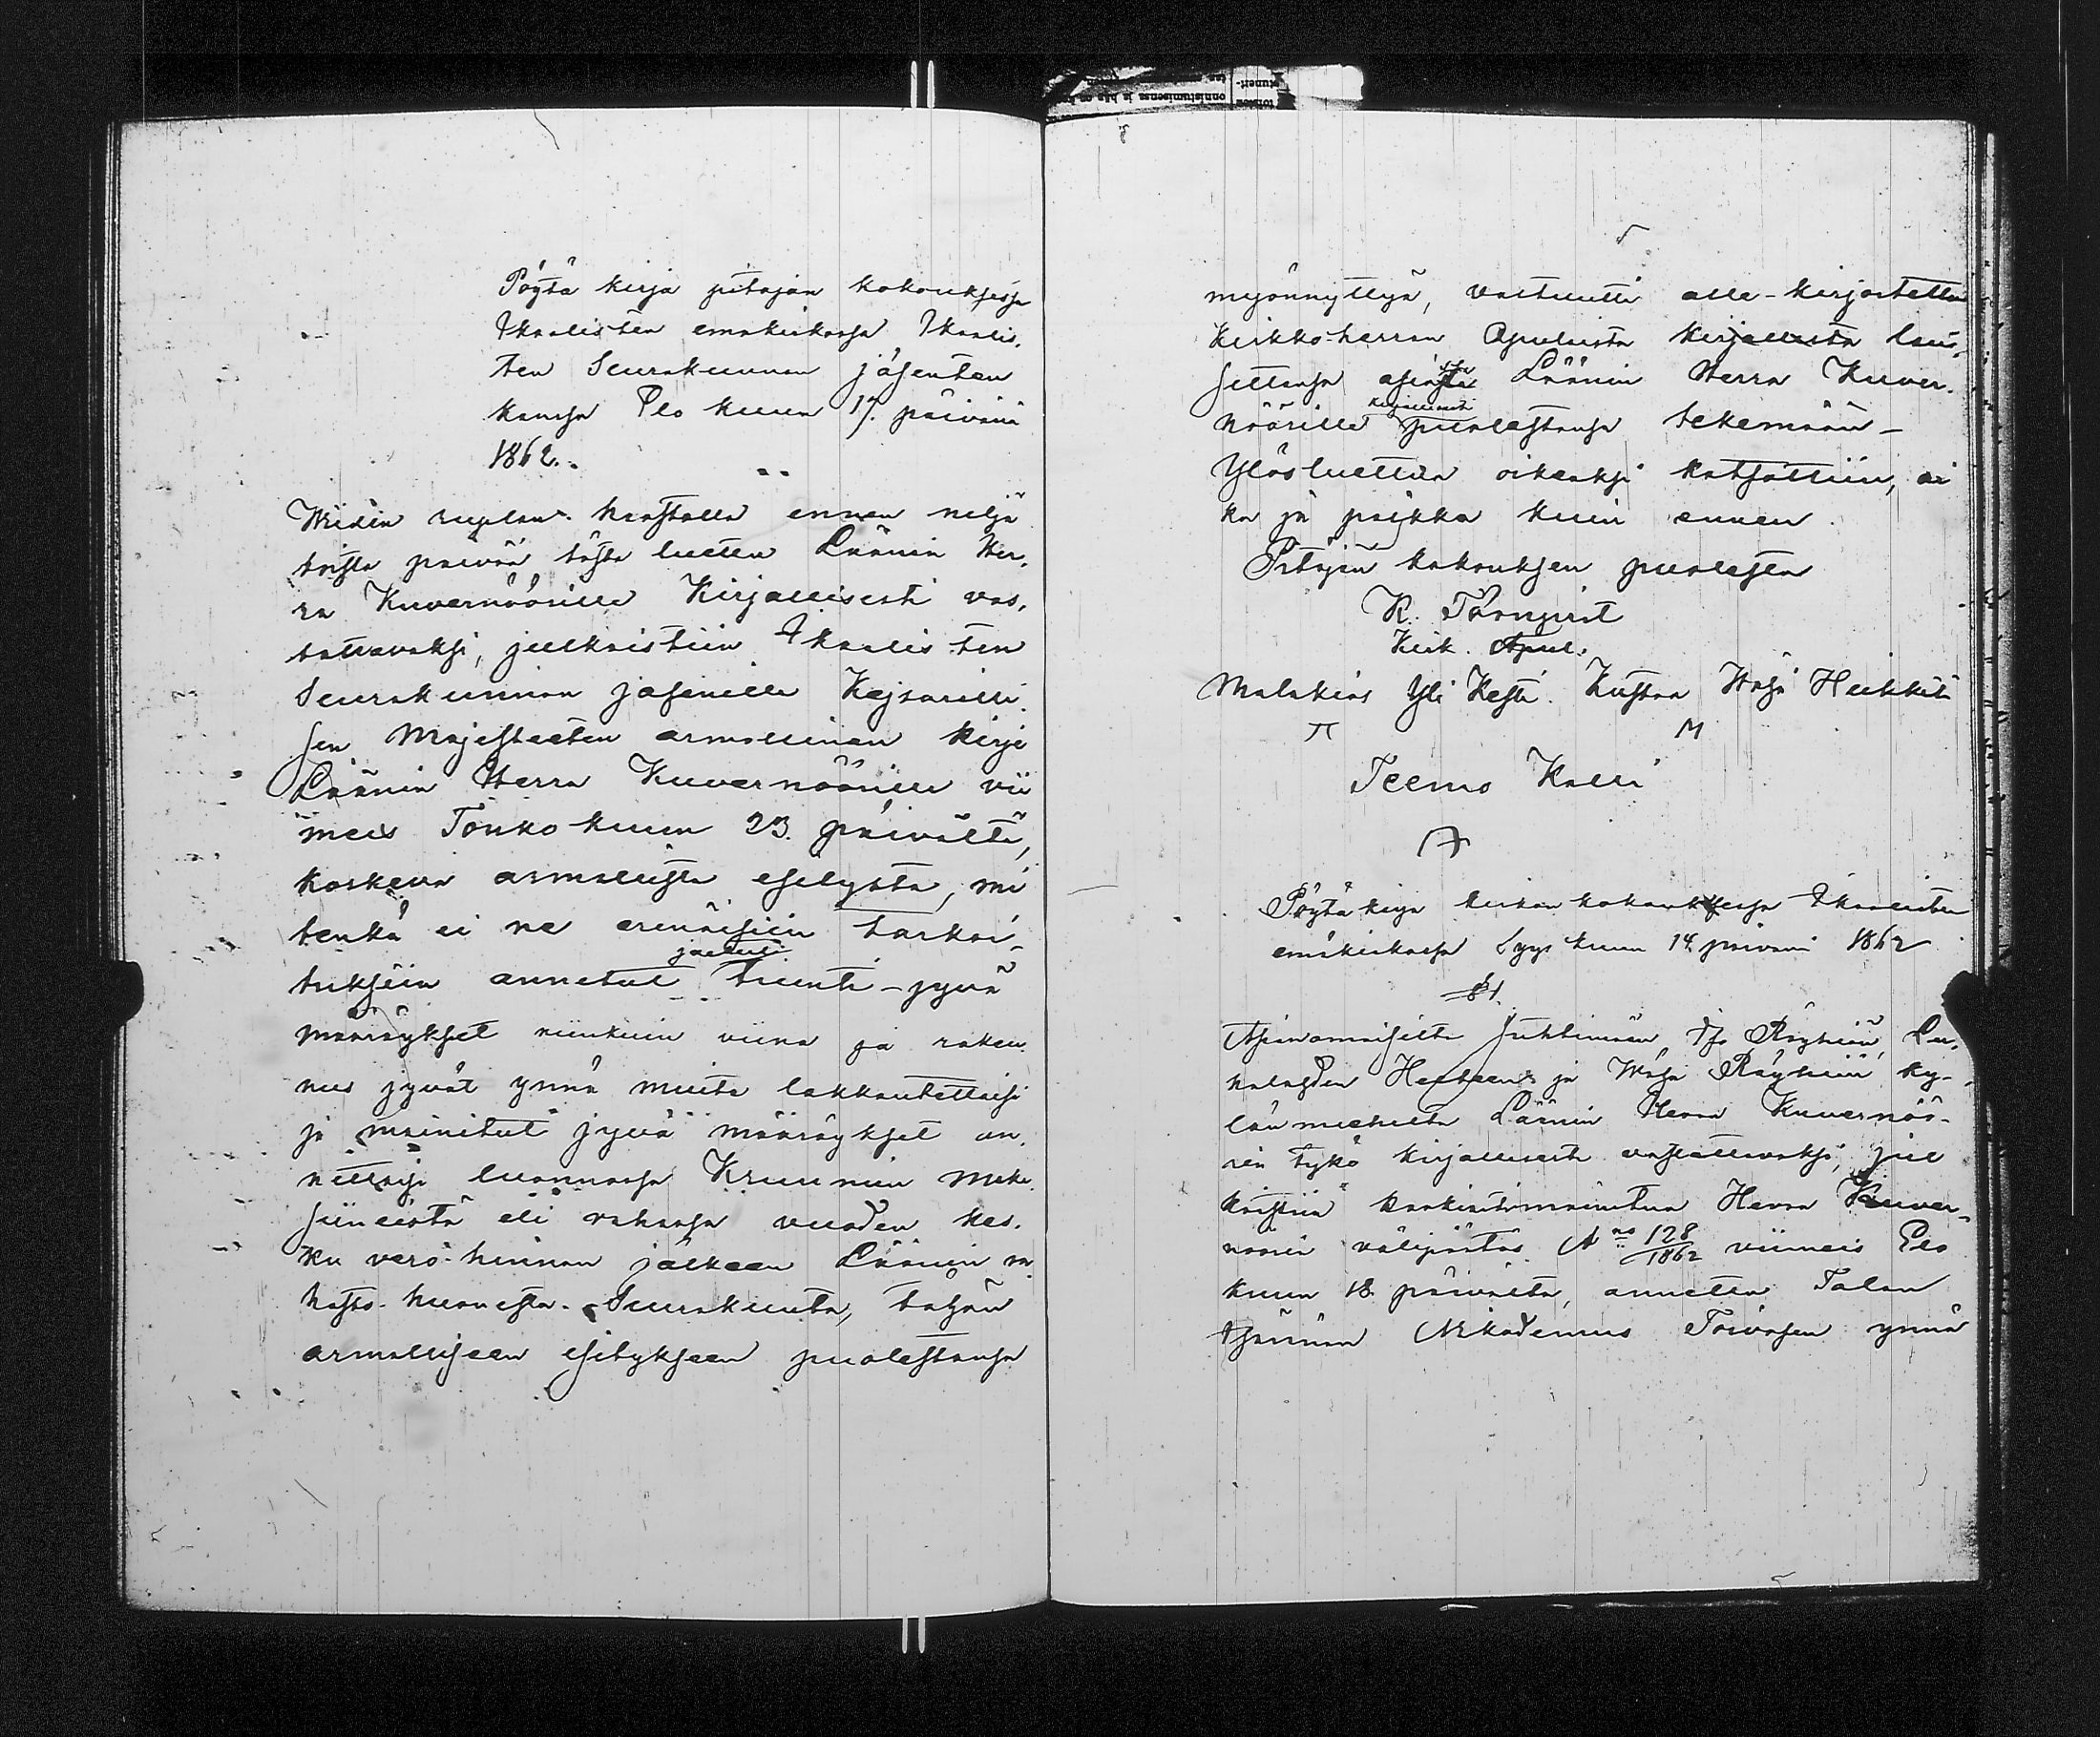 Pöytä kirja pitäjän kokouksessa
Ikalisten emäkirkossa Ikalis,
ten Seurakunnan jäsenten
kanssa Elo kuun 17. päivänä
1862.
Wiiden ruplan hrastalla ennen neljä
toista päivää tästä luetten Läänin Her,
ra Kuvernöörille Kirjallisesti vas,
tattavaksi, julkaistiin Ikalis ten
Seurakunnan jäsenille Kejsarilli,
sen Majesteeten armollinen kirje
Läänin Herra Kuvernöörille vii
meis Touko kuun 23. päivältä,
koskeva armollista esitystä, mi
tenkä ei ne erinäisiin tarkoi,
tuksiin annetut jaetut tiunti-jyvä
määräykset niinkuin viina ja raken
nus jyvät ynnä muita lakkautettaisi
ja mainitut jyvä määräykset an,
nettaisi luonnossa Kruunun maka
siineistä eli rahassa vuoden kes,
ku vero-hinnan jälkeen Läänin ra
hasto-huonesta. Seurakunta, tähän
armolliseen esitykseen puolestansa
myönnyttyä, vastuutti alle-kirjoitettua
Kirkko-herran Apulaista kirjallista lau,
settansa asiassa Läänin Herra Kuver,
nöörille kirjallisesti puolestansa tekemään-
Ylösluettua oikeaksi katsottiin, ai
ka ja paikka kuin ennen.
Pitäjän kokouksen puolesta
K. Törnqvist
Kirk. Apul.
Malakias Yli Kesti. Kustaa Wäha Heikkilä
Teemo Kalli
Pöytäkirja kirkon kokouksessa Ikalisten
emäkirkossa Syys kuun 14. päivänä 1862
§ 1.
Asianomaisilta Iso Röyhiön Lu,
halahden Heitteen ja Wähä Röyhiön ky-
län miehiltä Läänin Herra Kuvernöö-
rin tykö kirjallisesti vastattavaksi, jul
kaistiin Herra Kuver-
nöörin välipäätös A no 128/1862 viimeis Elo
kuun 18. päivältä, annettu Talon
Isännän Nikodemus Toivosen ynnä